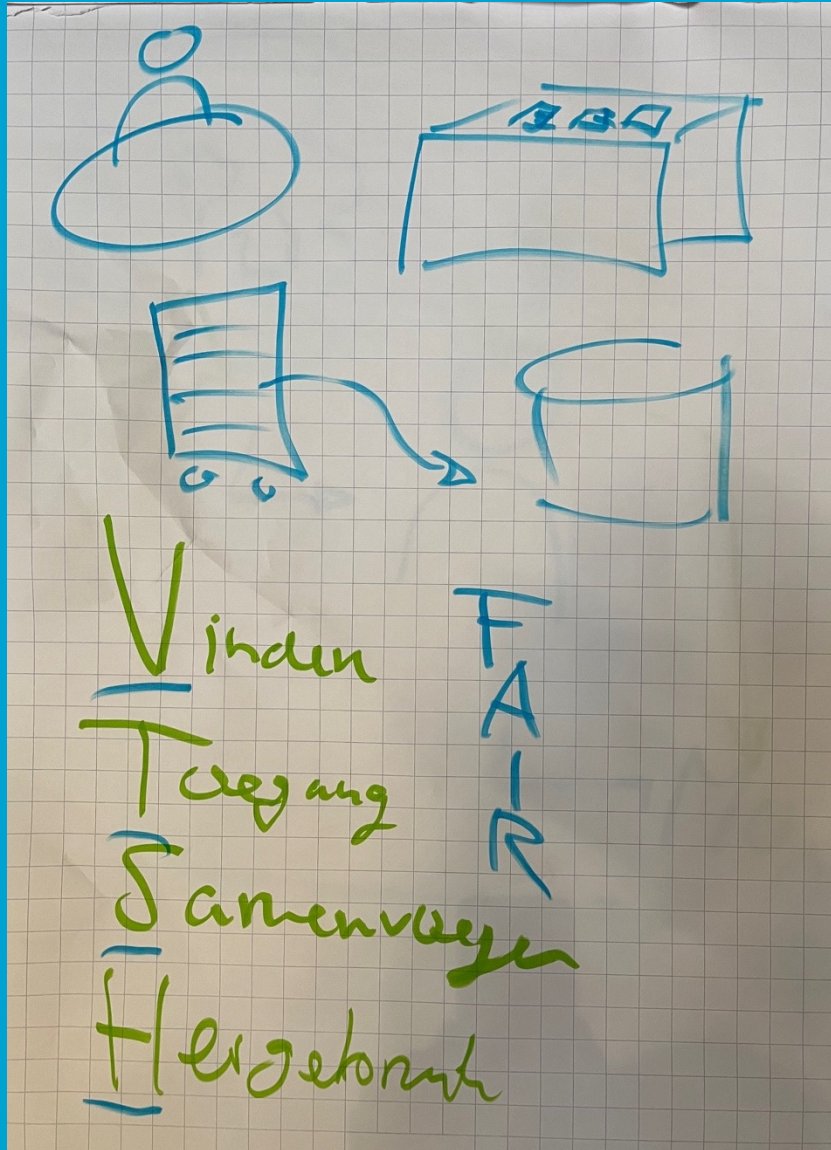 Vinden
Toegang
Samenvoegen
Hergebruik
F
A
I
R